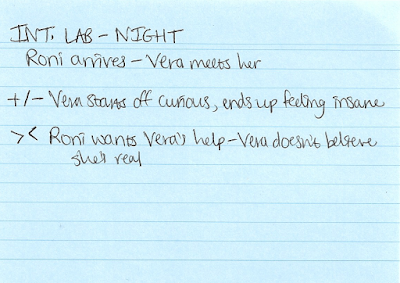 INT. LAB – NIGHT
Roni arrives – Vera meets her
+/– Vera starts off curious, ends up feeling insane
>< Roni wants Vera's help – Vera doesn't believe
she's real